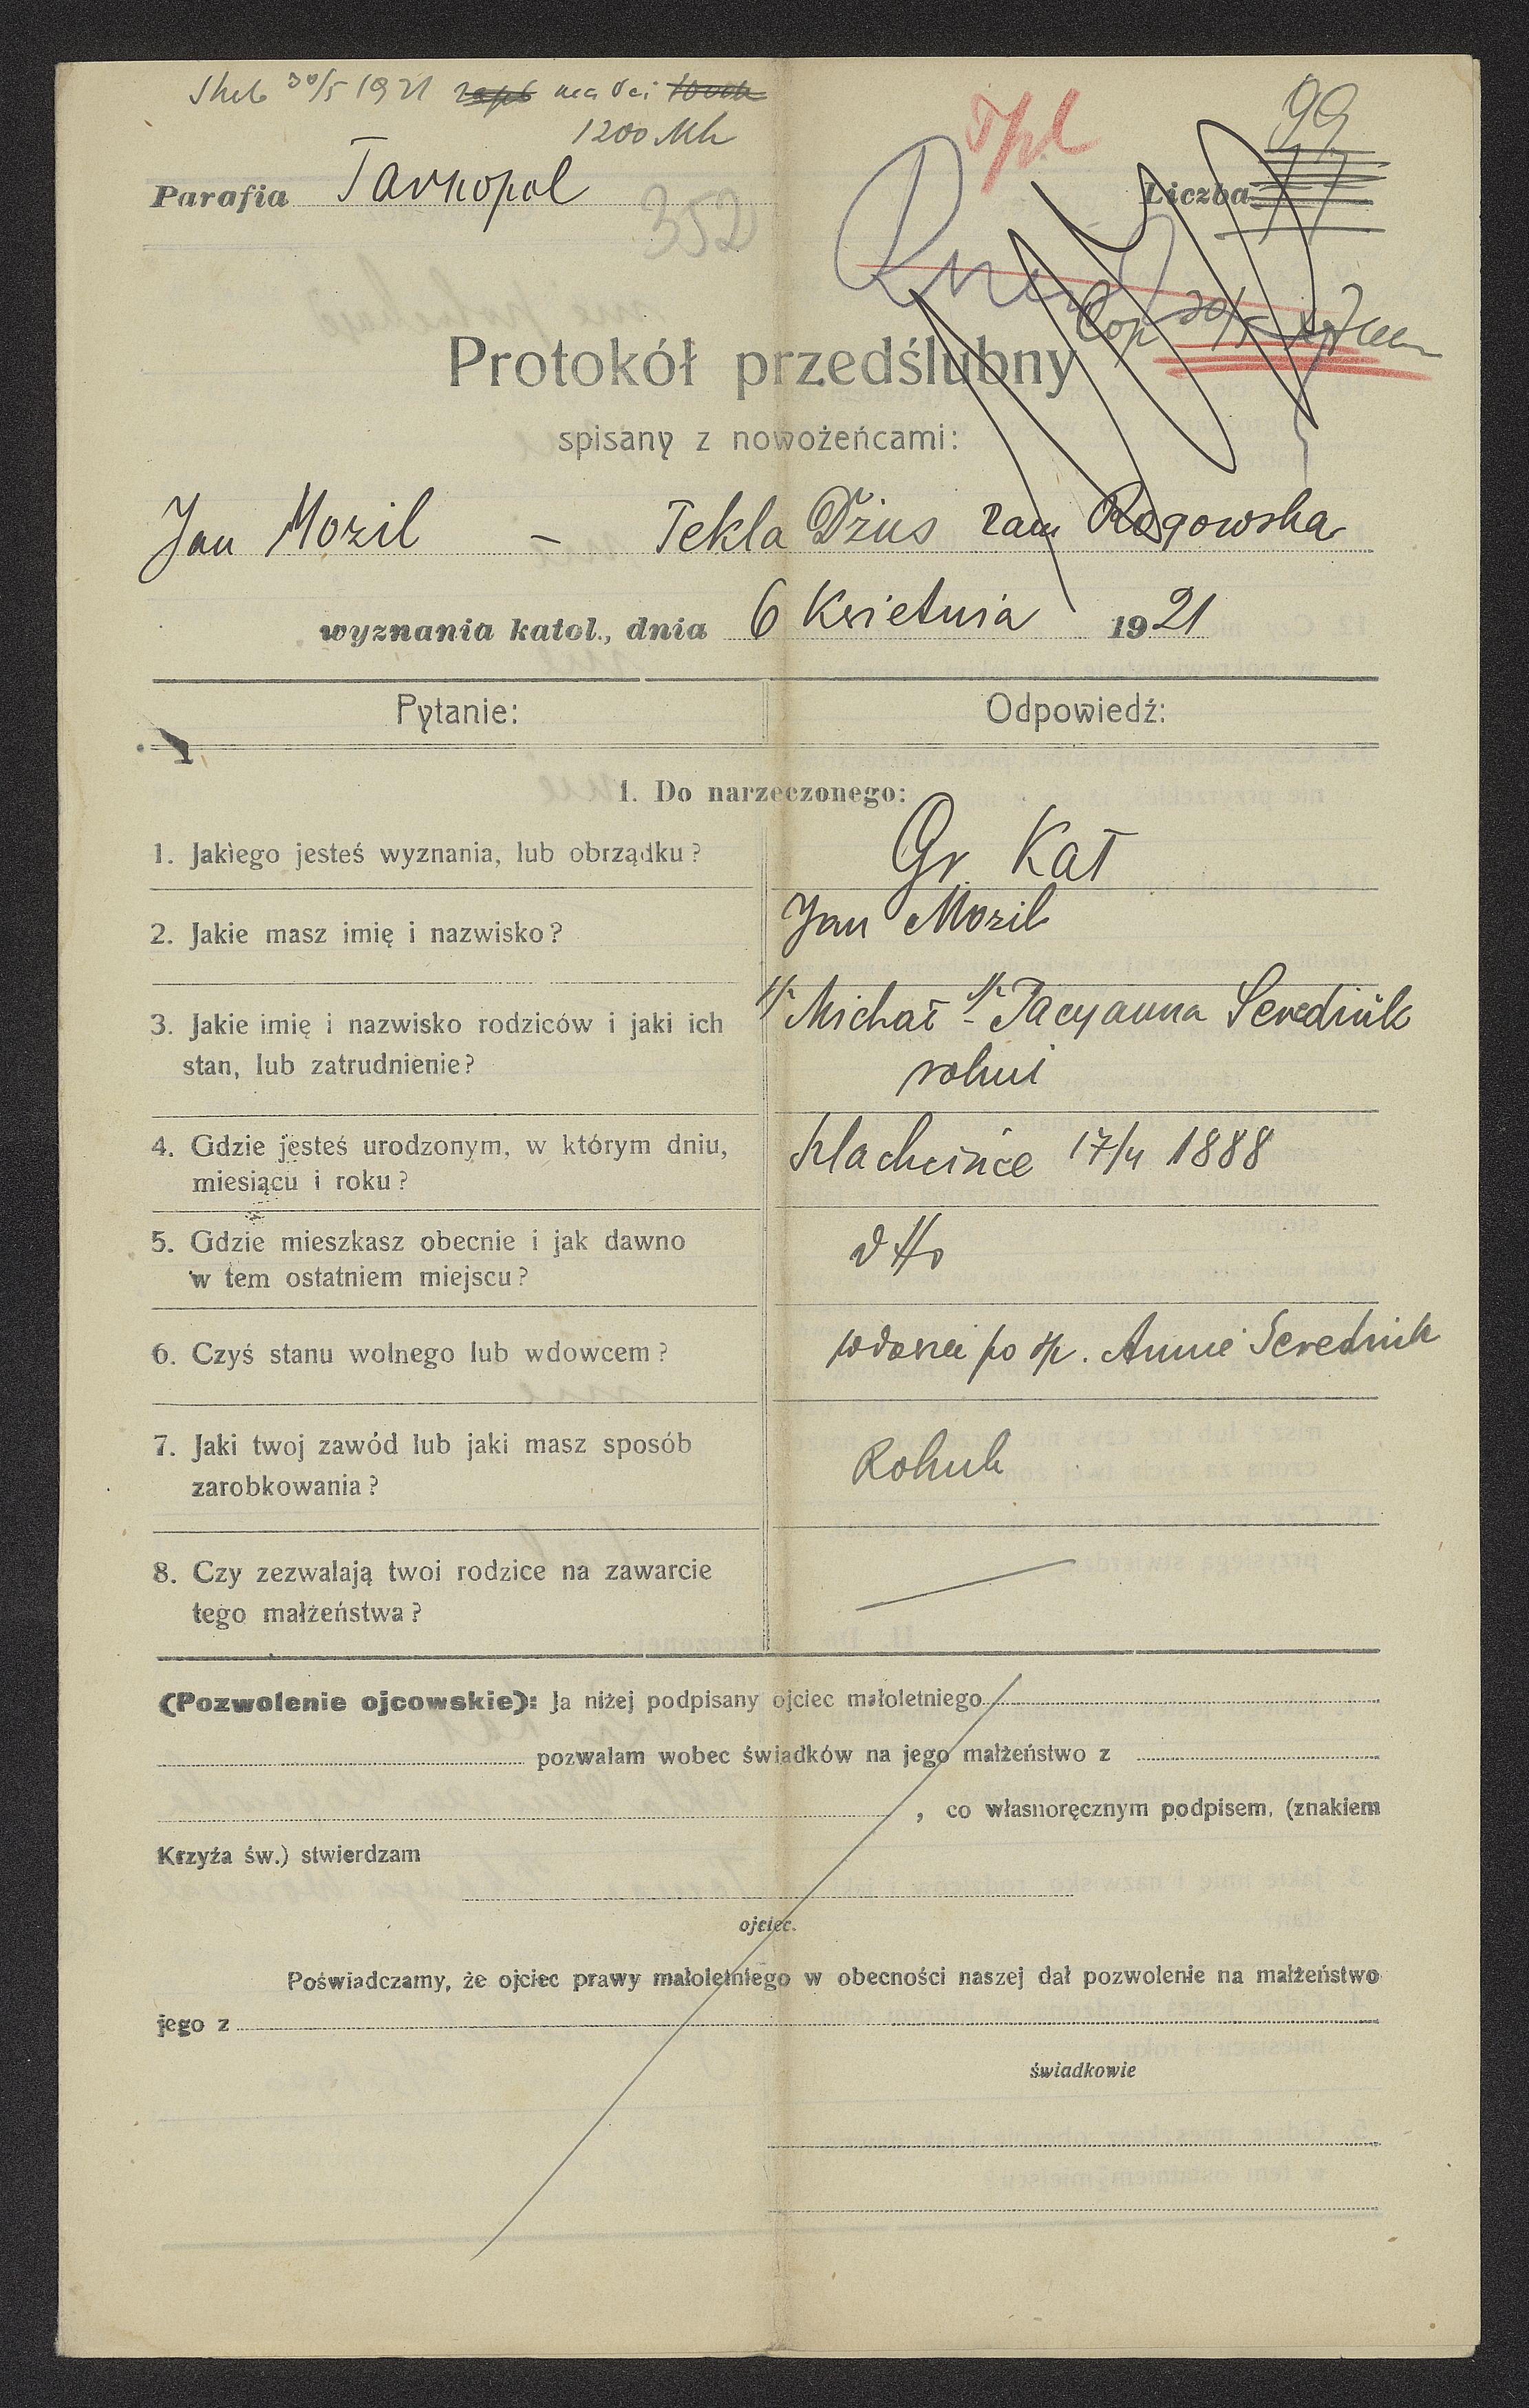 30/5 1921
1200 Mk
Tpl
99
Parafia Tarnopol
352
Liczba
Protokół przedślubny
spisany z nowożeńcami:
Jan Mozil – Tekla Dżus zam Rogowska
wyznania katol., dnia 6 Kwietnia 1921
Pytanie: Odpowiedź:
1. Do narzeczonego:
1. Jakiego jesteś wyznania, lub obrządku? Gr. Kat
2. Jakie masz imię i nazwisko? Jan Mozil
3. Jakie imię i nazwisko rodziców i jaki ich Michał Tacyanna Serediuk
stan, lub zatrudnienie? rolni
4. Gdzie jesteś urodzonym, w którym dniu, 17/4 1888
miesiącu i roku?
5. Gdzie mieszkasz obecnie i jak dawno dtto
w tem ostatniem miejscu?
6. Czyś stanu wolnego lub wdowcem? po śp. Annie Serediuk
7. Jaki twoj zawód lub jaki masz sposób Rolnik
zarobkowania?
8. Czy zezwalają twoi rodzice na zawarcie
tego małżeństwa?
(Pozwolenie ojcowskie): Ja niżej podpisany ojciec małoletniego
pozwalam wobec świadków na jego małżeństwo z
, co własnoręcznym podpisem, (znakiem
Krzyża św.) stwierdzam
ojciec.
Poświadczamy, że ojciec prawy małoletniego w obecności naszej dał pozwolenie na małżeństwo
jego z
świadkowie